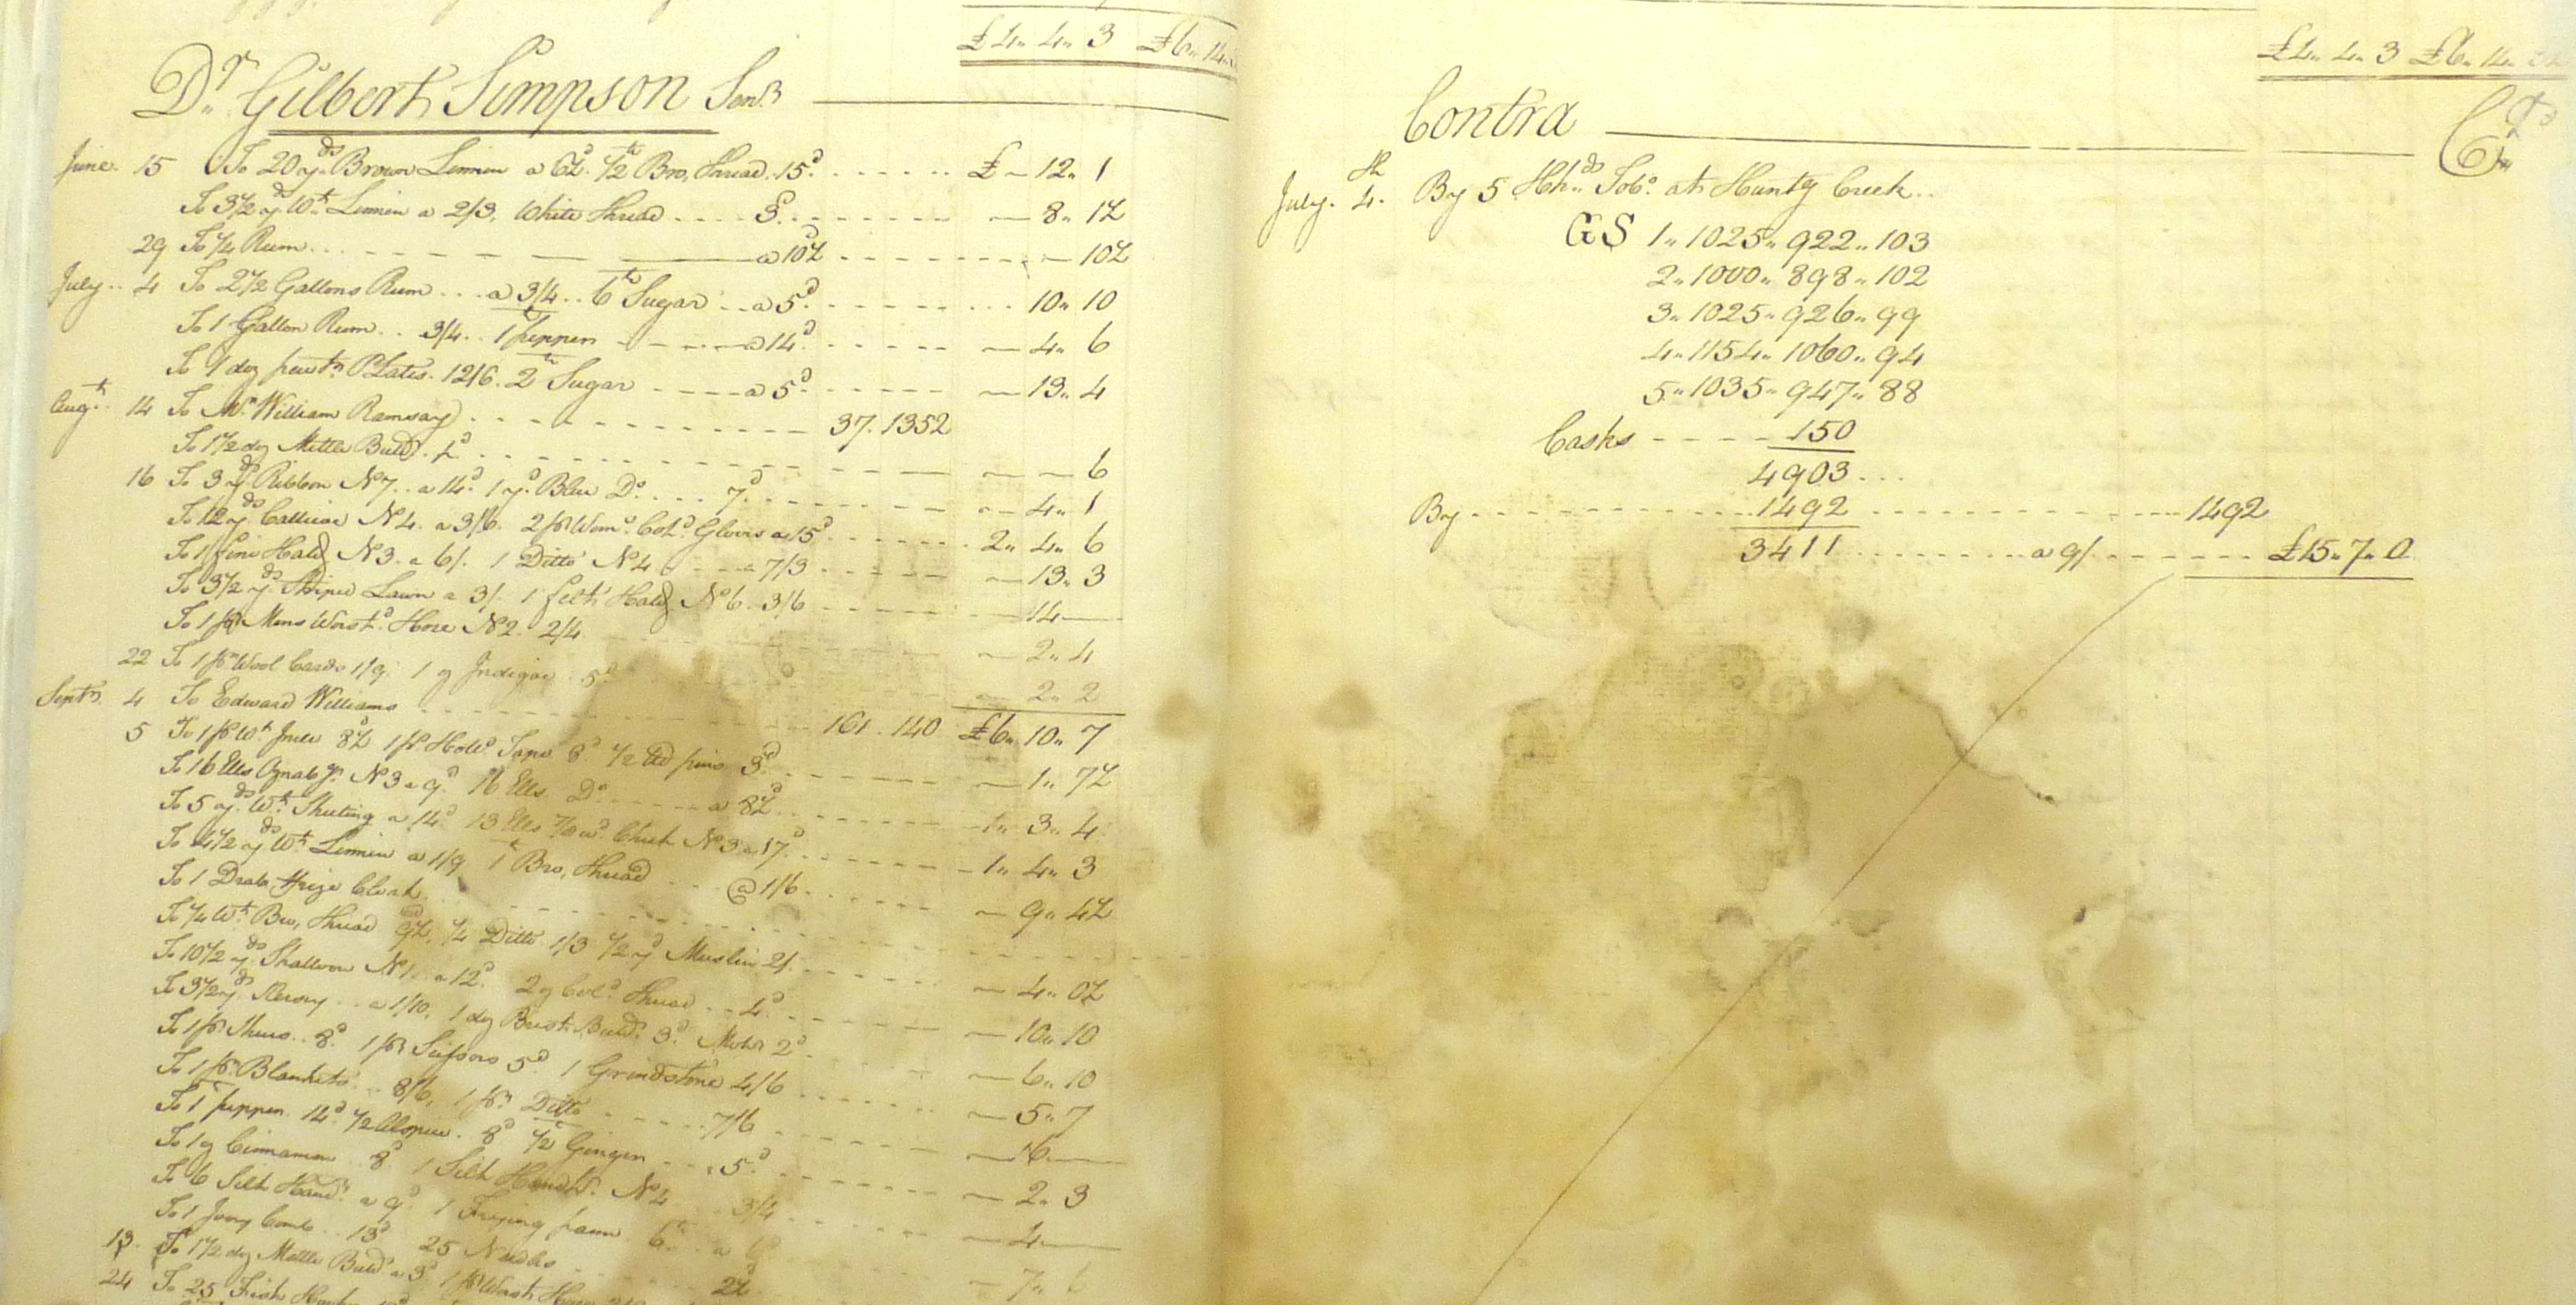 £4 " 4 " 3 £6 " 14
Dr. Gilbert Simpson Senr.
June 15 To 20 yds Brown Linnen a 6½d ½ lb Bro, Thread 15d £ - 12 " 1
To 3½ yds Wt Linnen a 2/3, White Thread 3d - 8 " 1½
29 To ¼ Rum a 10½d - 10½
July 4 To 2½ Gallons Rum a 3/4 6 lb Sugar a 5d 10 " 10
To 1 Gallon Rum 3/4 1 lb pepper a 14d - 4 " 6
To 1 doz pewtr Plates 12/6 2 lb Sugar a 5d - 13 " 4
Augt. 14 To Mr William Ramsay 37 . 1352
To 1½ doz Mettle Butts. 4d - - 6
16 To 3 yds Ribbon No 7 a 14d 1 yd Blew Do 7d - 4 " 1
To 12 yds Callicoe No 4 a 3/6 2 pr Woms Cold Gloves a 15d 2 " 4 " 6
To 1 fine Hatt No 3 a 6/. 1 Ditto No 4 a 7/3 - 13 " 3
To 3½ yds Striped Lawn a 3/. 1 felt Hatt No 6 3/6 - 14 -
To 1 pr Mens Worstd Hose No 2 2/4 - 2 " 4
22 To 1 pr Wool Cards 1/9 1 oz Indigoe 5d - 2 " 2
Septr. 4 To Edward Williams 161 . 140 £6 " 10 " 7
5 To 1 ps Wt Incle 8½ 1 ps Holld Tape 8d ½ pins 3d - 1 " 7½
To 16 Ells Oznabgs No 3 a 9d 16 Ells Do a 8½d 1 " 3 " 4
To 5 yds Wt Sheeting a 14d 13 Ells 7/8 wd Check No 3 a 17d 1 " 4 " 3
To 4½ yds Wt Linnen a 1/9 1 lb Bro, Thread @ 1/6 - 9 " 4½
To 1 Drab Frize Cloak
To ¼ Wt Bro, Thread 9½, ¼ Ditto 1/3 ½ yd Muslin 2/. - 4 " 0½
To 10½ yds Shalloon No 1 a 12d 2 oz Cold Thread 4d - 10 " 10
To 3½ yds Kersey a 1/10, 1 doz Brest Butts 3d Mohr 2d - 6 " 10
To 1 pr 8d 1 pr Scissors 5d 1 Grindstone 4/6 - 5 " 7
To 1 pr Blankets 8/6, 1 pr Ditto 7/6 - 16 -
To 1 lb pepper 14d ½ Alspice 8d ½ lb Ginger 5d - 2 " 3
To 1 oz Cinnamon 8d 1 Silk Handkf. No 4 3/4 - 4 -
To 6 Silk a 9d 1 Frying pann 6 lb a 6d - 7 " 6
To 1 Ivory Comb 13d 25 Needles 2½
13 To 1½ doz Mettle Butts a 3d 1 pr Worstd Hose
24 To 25 Fish Hooks
£4 " 4 " 3 £6 " 14
Contra Cr
July 4th By 5 Hhds Tobo. at Huntg Creek
GS 1 " 1025 " 922 " 103
2 " 1000 " 898 " 102
3 " 1025 " 926 " 99
4 " 1154 " 1060 " 94
5 " 1035 " 947 " 88
Casks 150
4903
By 1492 1492
3411 a 9/ £15 " 7 " 0